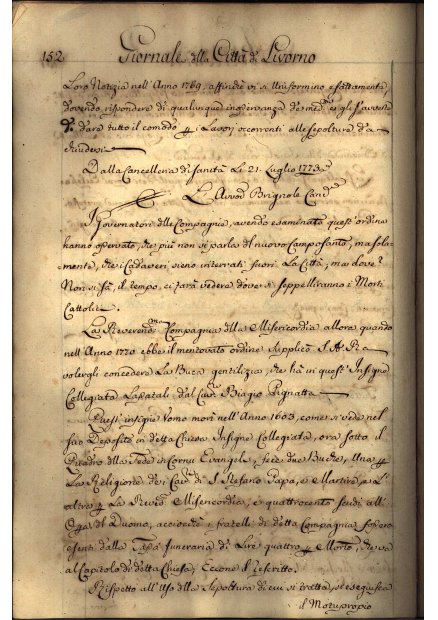 152 Giornale della Città di Livorno
Loro Notizia nell' Anno 1769, affinche vi si Uniformino esattamente,
dovendo rispondere di qualunque inosservanza de med.mi e gli s'avverte
di dare tutto il comodo p i Lavori occorrenti alle sepolture da
chiudersi
Dalla Cancelleria di Sanità Li 21. Luglio 1773.
L. Avvo Brignole Canc.re
I Governatori della Compagnia, avendo esaminato quest' ordine
hanno osservato, che più non si parla del nuovo Campo Santo, ma sola-
mente, che i Cadaveri sieno interrati fuori La Città, ma dove?
Non si sà, il tempo, ci farà vedere dove si seppelliranno i Morti
Cattolici.
La Reverend.ma Compagnia della Misericordia allora quando
nell' Anno 1770 ebbe il mentovato ordine Supplicò S. A. R. a
volergli concedere La Buca gentilizia, che hà in quest' Insigne
Collegiata Lapatali dal Cav. Biagio Pignatta
Quest' insigne Uomo morì nell' Anno 1603, come si vede nel
suo Deposito in detta Chiesa Insigne Collegiata, ora sotto il
Quadro della Fede in Cornu Evangeli, fece due Buche, Una p
La Religione de i Cav.ri di S. Stefano Papa, e Martire, e L'
altra p La Rev.da Misericordia, e quattrocento scudi all'
Op.a del Duomo, acciocchè i fratelli di detta Compagnia fossero
esenti dalla Tassa funeraria di Lire quattro p Morto, che va
al Capitolo di detta Chiesa; Eccone il Rescritto.
Rispetto all' Uso della Sepoltura di cui si tratta, si eseguisca
il Motuproprio